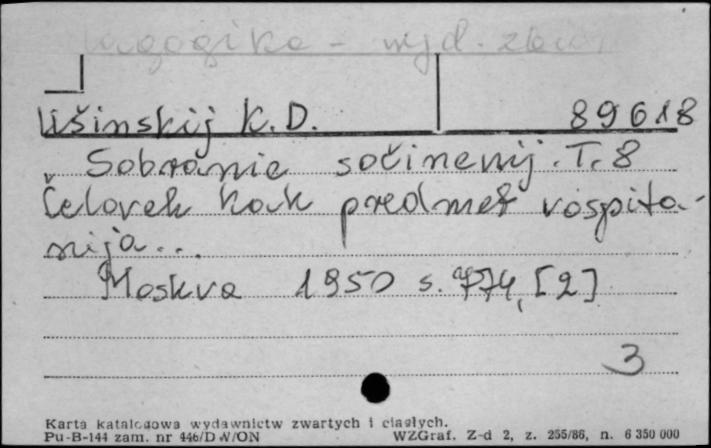 Pedagogika - wyd. zbior.
Ušinskij K.D. 89618
Sobranie sočinenij. T. 8
Čelovek kak predmet vospita-
nija...
Moskva 1950 s. 774, [2]
3
Karta katalogowa wydawnictw zwartych i ciągłych.
Pu-B-144 zam. nr 446/DW/ON WZGraf. Z-d 2, z. 255/86, n. 6 350 000